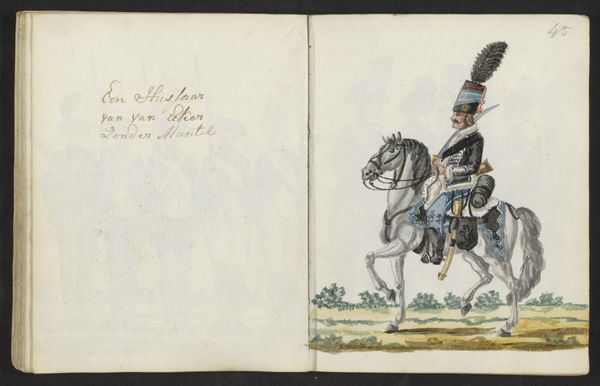 Een Hussaar
van van Eker
Zonder Mantel
45